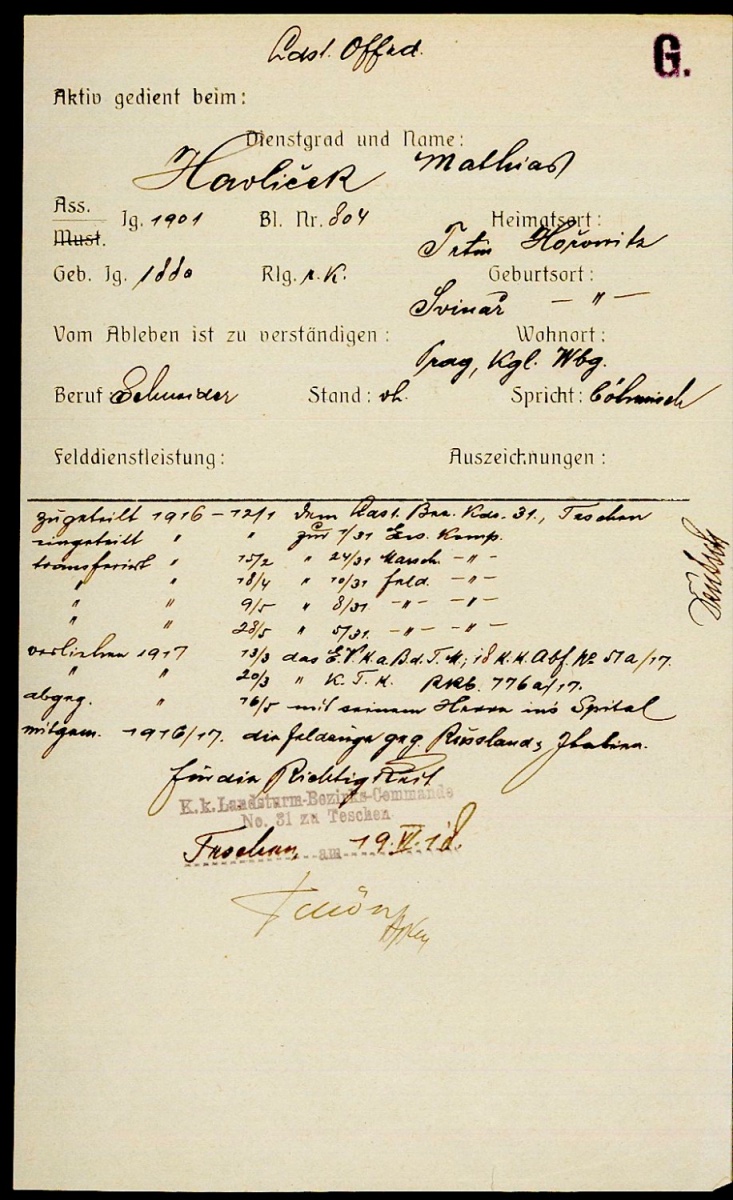 Ldst. Offzd.
G.
Aktiv gedient beim:
Dienstgrad und Name:
Havliček Mathias
Ass. Jg. 1901 Bl. Nr. 804 Heimatsort:
Must.
Tetin Hořowitz
Geb. Jg. 1880 Rlg. r. K. Geburtsort:
Svinař — " —
Vom Ableben ist zu verständigen: Wohnort:
Prag, Kgl. Wbg.
Beruf: Schneider Stand: vh. Spricht: böhmisch
Deutsch
Felddienstleistung: Auszeichnungen:
zugeteilt 1916 - 12/1 dem Ldst. Bez. Kdo. 31., Teschen
eingeteilt " " zur 1/31 Ers. Komp.
transferirt " 15/2 " 24/31 Marsch. - " -
" " 18/4 " 10/31 Feld. - " -
" " 9/5 " 8/31 - " - - " -
" " 28/5 " 5/31. - " - - " -
verliehen 1917 13/3 das E.V.K.a.B.d.T.M.; 18 K.K. Abf. No 51a/17.
" " 20/3 " K.T.K. 776a/17.
abgeg. " 16/5 mit seinem Herrn ins Spital
mitgem. 1916/17. die Feldzüge geg. Russland, Italien.
Für die Richtigkeit
K.k. Landsturm-Bezirks-Commando
No. 31 zu Teschen
Teschen, am 19. VI. 18.